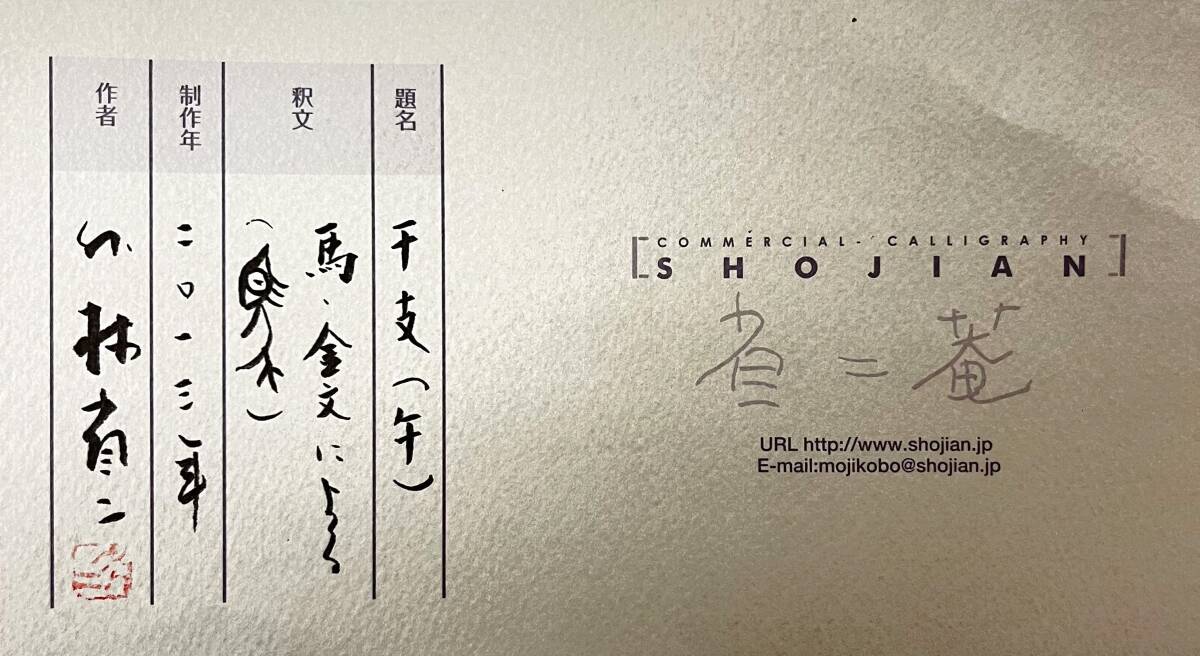 題名
干支(午)
釈文
馬、金文による
制作年
二〇一三年
作者
小林省二
COMMERCIAL-CALLIGRAPHY
SHOJIAN
省二菴
URL http://www.shojian.jp
E-mail:mojikobo@shojian.jp